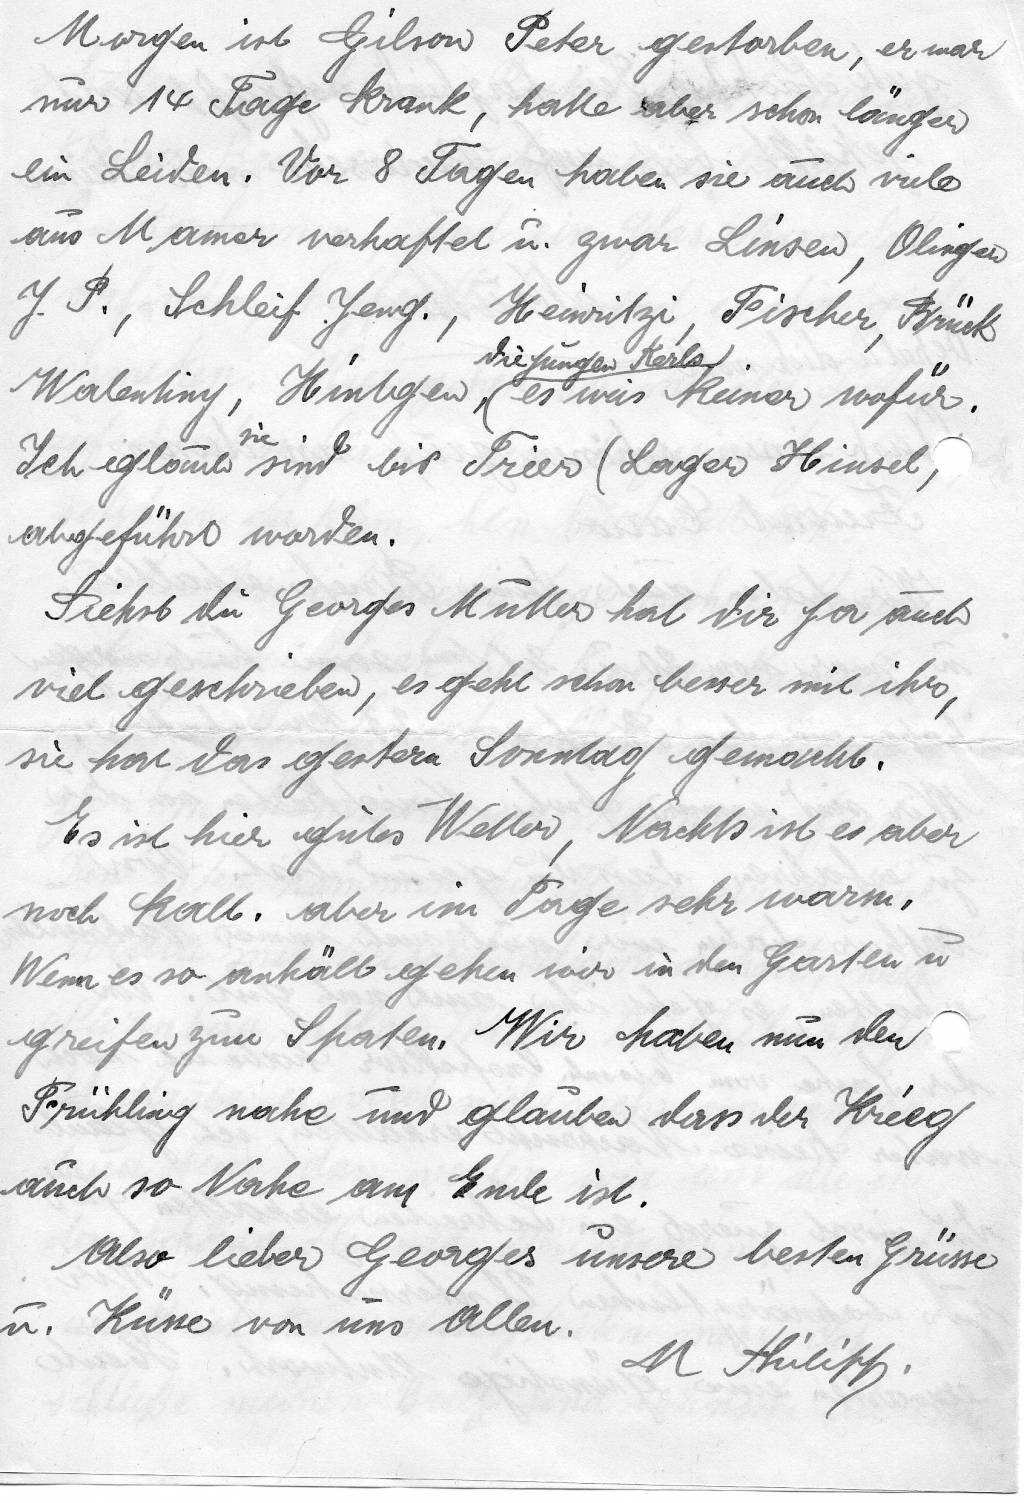 Morgen ist Gilson Peter gestorben, er war
nur 14 Tage krank, hatte aber schon länger
ein Leiden. Vor 8 Tagen haben sie auch viele
aus Mamer verhaftet u. zwar Linsen, Olinger
J. P., Schleif Jeng., Heinritzi, Fischer, Brück
die jungen Kerls)
Walentiny, Hintgen, (es weis keiner wofür.
sie
Ich glaub sind bis Trier (Lager Hinsel,
abgeführt worden.
Siehst du Georges Mutter hat dir ja auch
viel geschrieben, es geht schon besser mit ihr,
sie hat das gestern Sonntag gemacht.
Es ist hier gutes Wetter, Nachts ist es aber
noch kalt. aber im Tage sehr warm.
Wenn es so anhält gehen wir in den Garten u
greifen zum Spaten. Wir haben nun den
Frühling nahe und glauben dass der Krieg
auch so Nahe am Ende ist.
Also lieber Georges unsere besten Grüsse
u. Küsse von uns Allen.
M Philipp.